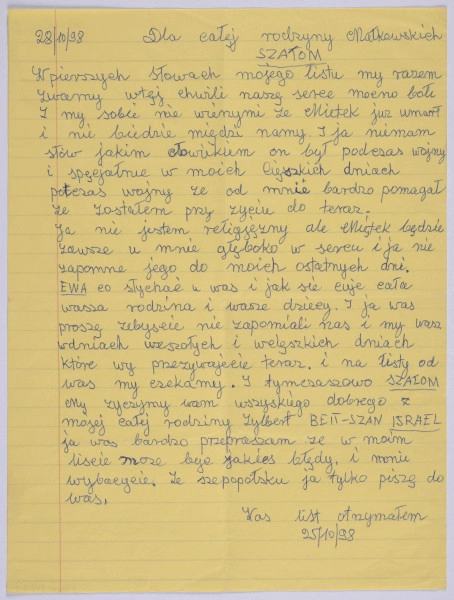 28/10/98 Dla całej rodzyny Małkowskich
SZAŁOM
W pierszych słowach mojego listu my razem
zwamy wtej chwili naszę serce mocno bołi
I my sobie nie wierzymi ze Mietek już umarł
i nie biedzie miedzi namy. I ja niemam
słów jakim człowikiem on był podczas wojny
i spęjałnie w moich cięszkich dniach
potczas wojny ze od mnie bardzo pomagał
że zostałem przy zyciu do teraz.
Ja nie jestem religięzny ale Mietek będzie
zawsze u mnie głęboko w sercu i ja nie
zapomne jego do moich ostatnych dni.
EWA co stychać u was i jak się czuje cała
wasza rodzina i wasze dziecy. I ja was
proszę zebyscie nie zapomiali nas i my was
wdniach wesołych i wcięszkich dniach
które wy przezywajecie teraz. i na listy od
was my czekamy. I tymczaszowo SZAŁOM
my zyczymy wam wszyskiego dobrego z
mojej całej rodziny Zylbert BEIT-SZAN ISRAEL
ja was bardzo przepraszam ze w moim
liscie może byc jakies błędy. i mnie
wybaczcie. Ze szepopolsku ja tylko piszę do
was.
Was list otrzymałem
25/10/98